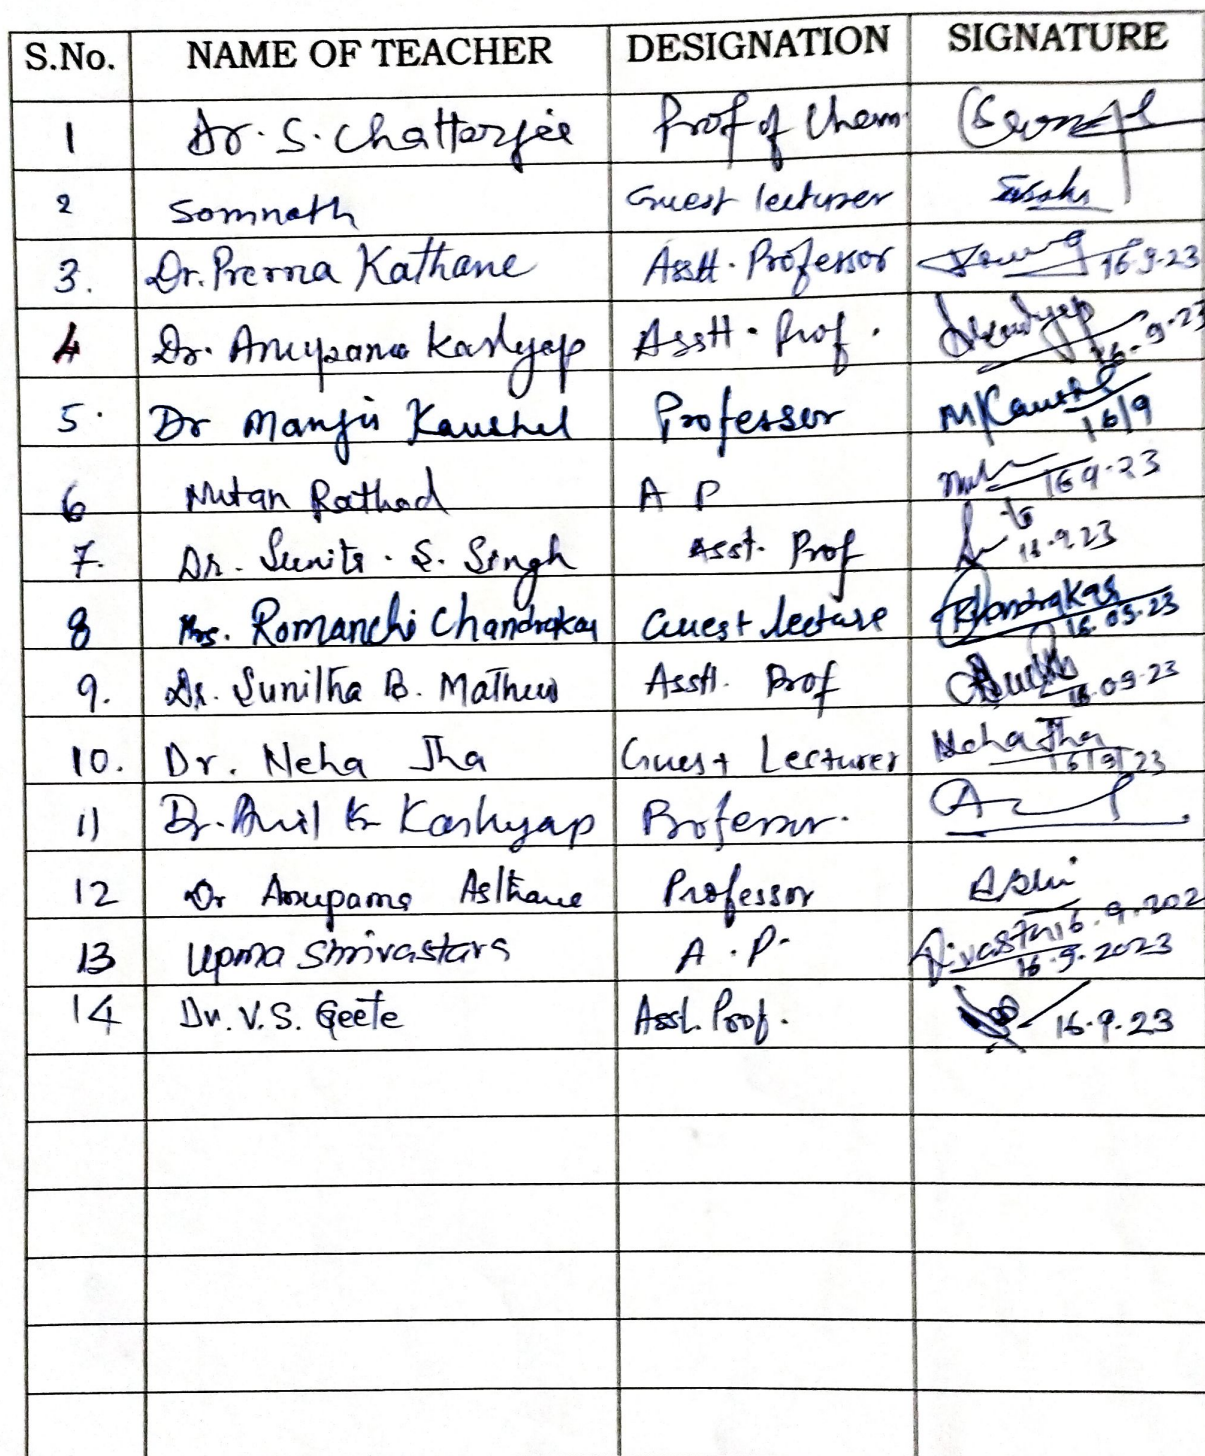 S.No. NAME OF TEACHER DESIGNATION SIGNATURE
1 Dr. S. Chatterjee Prof of Chem.
2 Somnath Guest lecturer
3. Dr. Prerna Kathane Asstt. Professor 16.9.23
4 Dr. Anupama Kashyap Asstt. Prof. 16.9.23
5. Dr Manju Kaushal Professor MKaushal 16/9
6 Nutan Rathod A P 16 9.23
7. Dr. Sunita. S. Singh Asst. Prof 16.9.23
8 Mrs. Romanchi Chandrakar Guest lecture Chandrakar 16.09.23
9. Dr. Sunitha B. Mathew Asstt. Prof 16.09.23
10. Dr. Neha Jha Guest Lecturer Neha Jha 16/9/23
11 Dr. Anil K Kashyap Professor.
12 Dr Anupama Asthane Professor 16.9.202
13 Upma Shrivastava A.P. 16.9.2023
14 Dr. V.S. Geete Asst. Prof. 16.9.23